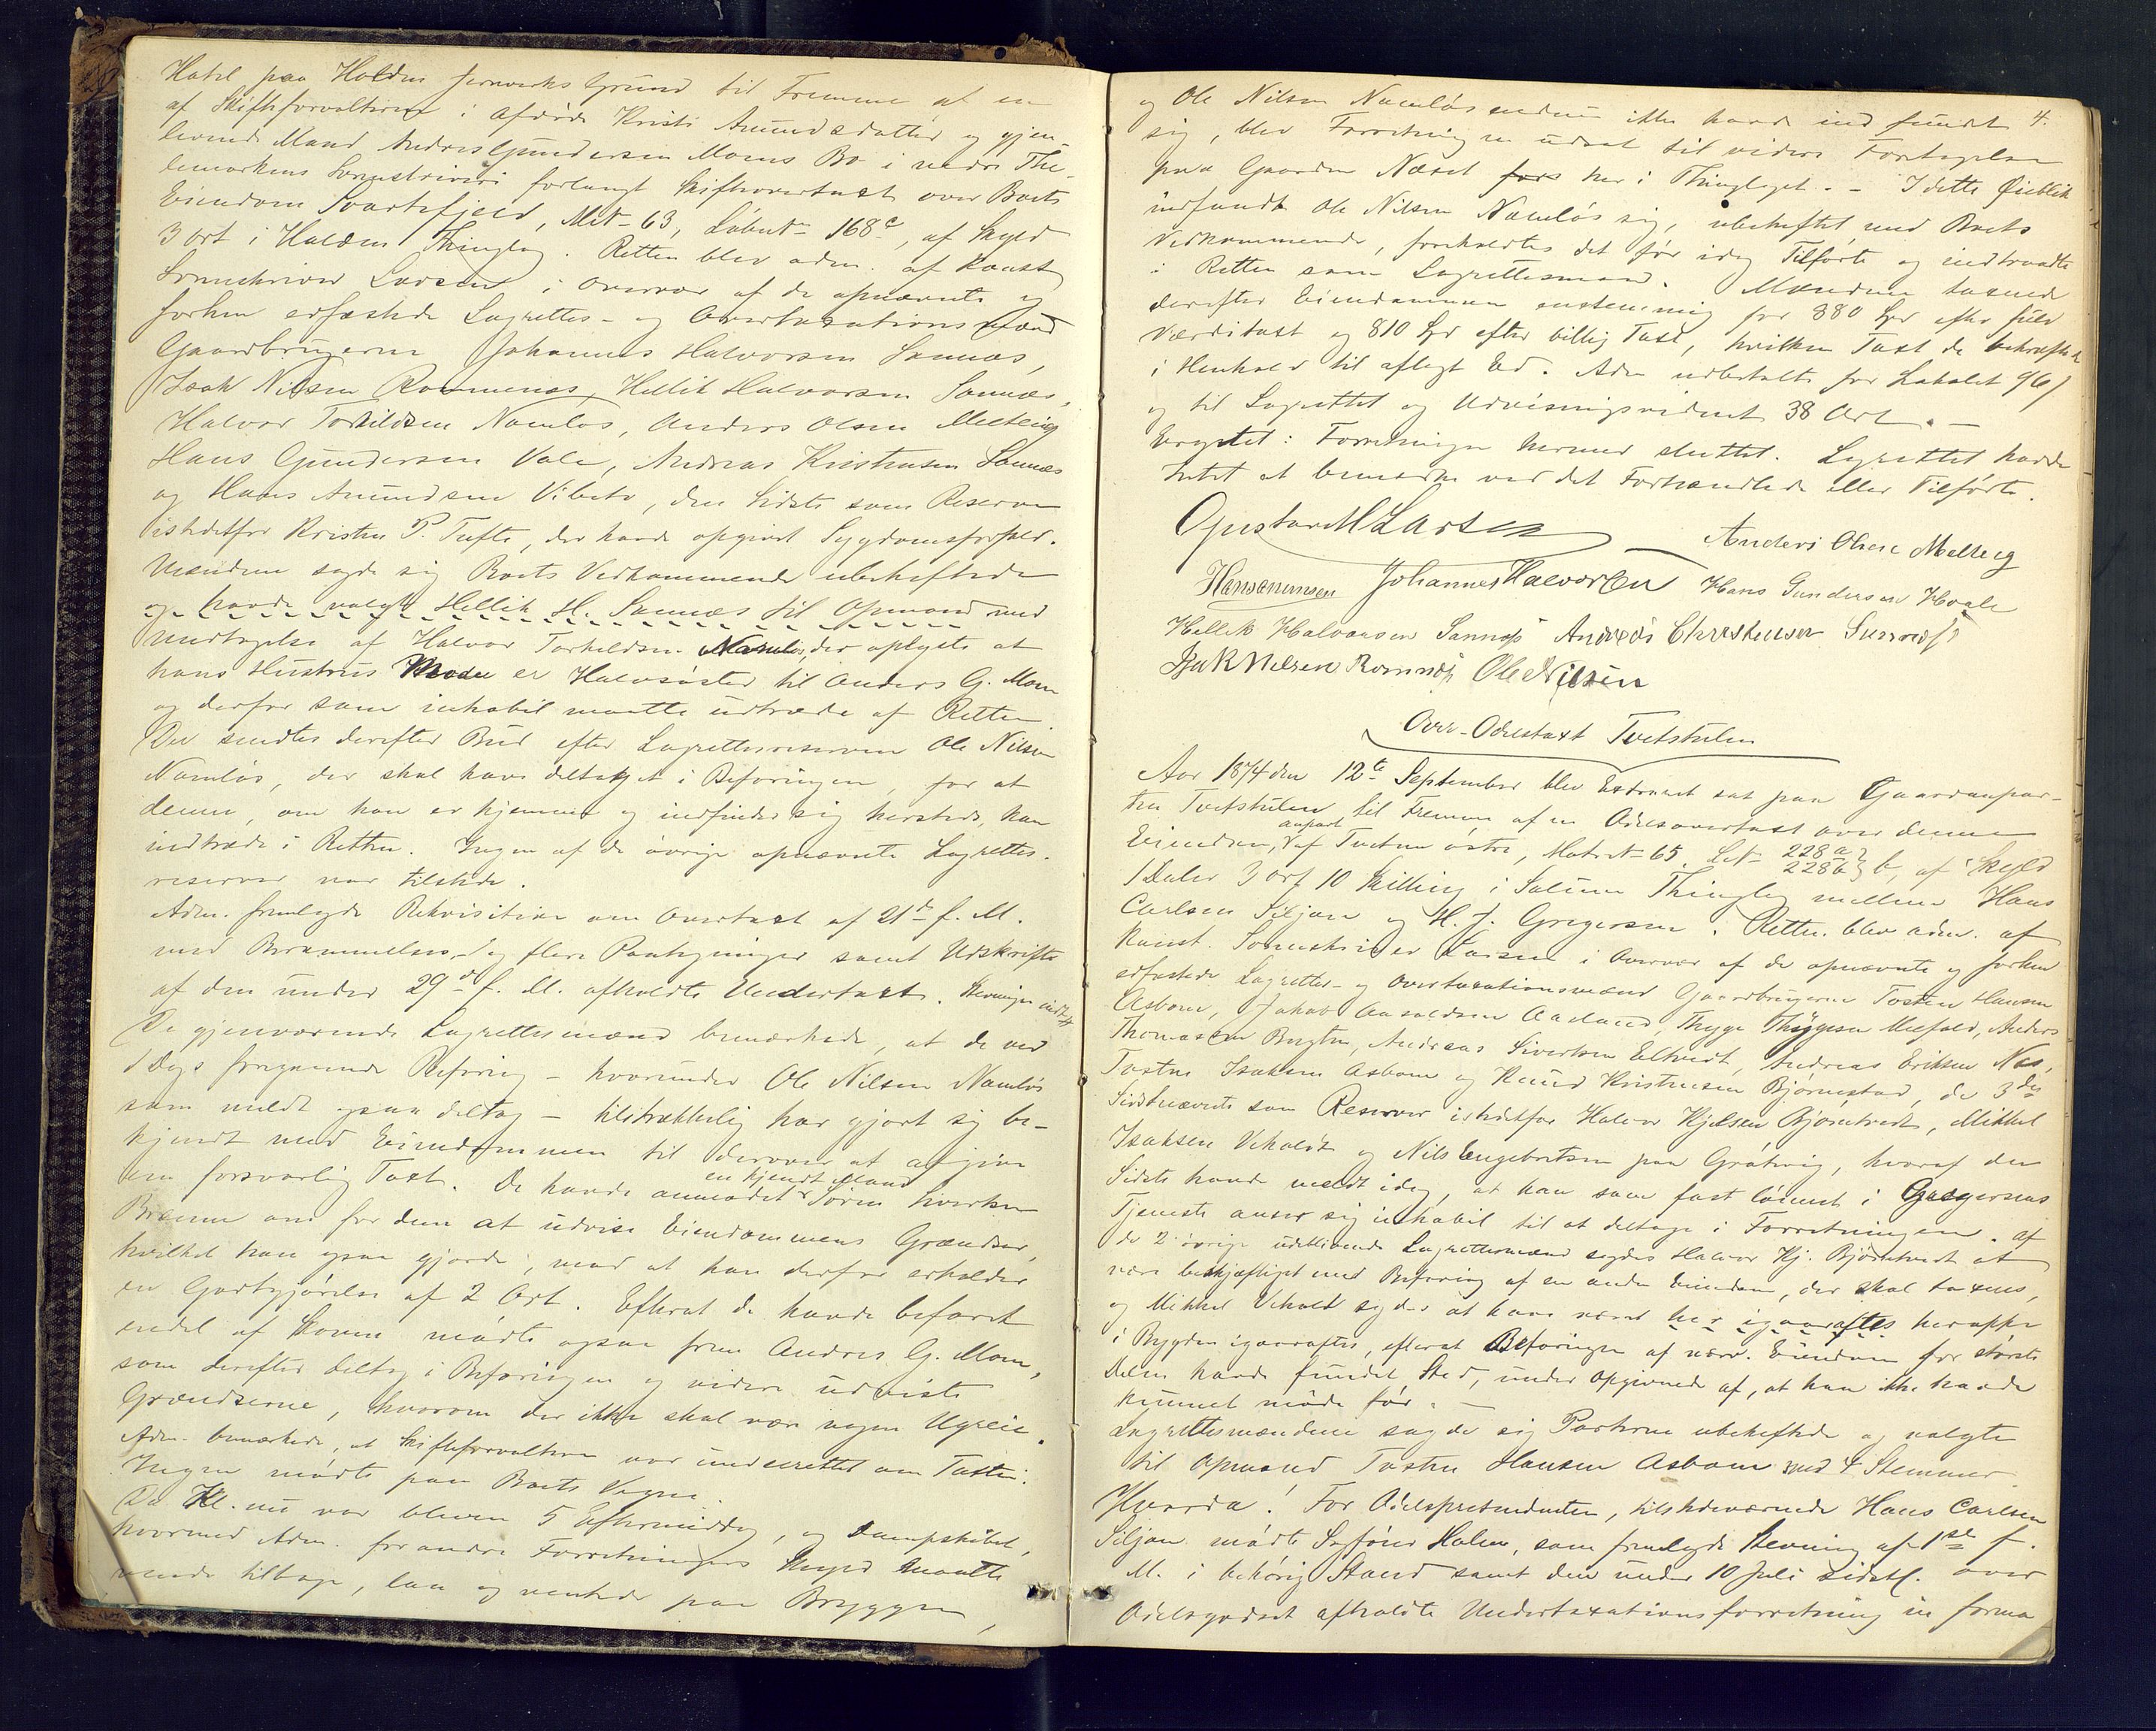 Hotel paa Holden Jernværks Grund til Fremme af en
af Skifteforvalteren i afdøde Kristi Amundsdatter og gjen-
levende Mand Andres Gundersen Moens Bo i nedre The-
lemarkens Sorenskriveri forlangt Skifteovertaxt over Boets
Eiendom Svartefjeld, Mtr No 63, Løbe No 168c, af Skyld
3 Ort i Holden Thinglag. Retten blev adm. af Konst
Sorenskriver Larsen i Overvær af de opnævnte og
forhen edfæstede Lagrettes- og Overtaxationsmænd
Gaardbrugerne Johannes Halvorsen Sannæs,
Isak Nilsen Romnæs, Hellik Halvorsen Sannæs,
Halvor Torkildsen Namløs, Anders Olsen Melteig
Hans Gundersen Vale, Andreas Kristensen Sannæs
og Hans Amundsen Vibeto, den Sidste som Reserve
istedetfor Kristen P. Tufte, der havde opgivet Sygdomsforfald.
Mændene sagde sig Boets Vedkommende ubeheftede
og havde valgt Hellik H. Sannæs til Opmand med
Undtagelse af Halvor Torkeldsen Namløs, der oplyste at
hans Hustrus Moder er Halvsøster til Anders G. Moen
og derfor som inhabil maatte udtræde af Retten.
Der sendtes derefter Bud efter Lagrettesreserven Ole Nilsen
Namløs, der skal have deltaget i Befaringen, for at
denne, om han er hjemme og indfinder sig hersteds, kan
indtræde i Retten. Ingen af de øvrige opnævnte Lagrettes-
reserver var tilstede.
Adm. fremlagde Rekvisition om Overtaxt af 21de f. M.
med Berammelses- og flere Paategninger samt Udskrift
af den under 29de f. M. afholdte Undertaxt.
De gjenværende Lagrettesmænd bemærkede, at de ved
1 Dags foregaaende Befaring – hvorunder Ole Nilsen Namløs
som meldt ogsaa deltog – tilstrækkelig har gjort sig be-
kjendt med Eiendommen til derover at afgive
en forsvarlig Taxt. De havde anmodet en kjendt Mand Søren Hverken
Brænne om for dem at udvise Eiendommens Grændser,
hvilket han ogsaa gjorde, mod at han derfor erholder
en Godtgjørelse af 2 Ort. Efterat de havde befaret
endel af Skoven mødte ogsaa frem Andres G. Moen,
som derefter deltog i Befaringen og videre udviste
Grændserne, hvorom der ikke skal være nogen Ugreie.
Adm. bemærkede, at Skifteforvalteren var underrettet om Taxten.
Ingen mødte paa Boets Vegne.
Da Kl. nu var bleven 5 Eftermiddag, og Dampskibet,
hvormed Adm. for andre Forretningers Skyld maatte
vende tilbage, laa og ventede paa Bryggen,
4.
og Ole Nilsen Namløs endnu ikke havde indfundet
sig, blev Forretningen udsat til videre Foretagelse
paa Gaarden Næset her i Thinglaget. – I dette Øieblik
indfandt Ole Nilsen Namløs sig, ubeheftet med Boets
Vedkommende, foreholdtes det før idag Tilførte og indtraadte
i Retten som Lagrettesmand. Mændene taxerede
derefter Eiendommen enstemmig for 880 Spd efter fuld
Værditaxt og 810 Spd efter billig Taxt, hvilken Taxt de bekræftede
i Henhold til aflagt Ed. Adm udbetalte for Lokalet 96 /
og til Lagrettet og Udvisningsvidnet 38 Ort. –
Forretningen hermed sluttet. Lagrettet havde
Intet at bemærke ved det Forhandlede eller Tilførte.
Gustav M Larsen Anders Olsen Melteig
Hansamunsen Johannes Halvorsen Hans Gundersen Hvale
Hellik Halvorsen Sannæs Andreas Christensen Sannæs
Isak Nielsen Romnæs Ole Nilsen
Over-Odelstaxt Tvetstulen
Aar 1874 den 12te September blev Extraret sat paa Gaardanpar-
ten Tvetstulen til Fremme af en Odelsovertaxt over denne
Eiendom, anpart af Tveten østre, Matr No 65, L No 228a 228b } b, af Skyld
1 Daler 3 Ort 10 Skilling i Solum Thinglag mellem Hans
Carlsen Siljan og H. J. Gregersen. Retten blev adm. af
Konst. Sorenskriver Larsen i Overvær af de opnævnte og forhen
edfæstede Lagrettes- og Overtaxationsmænd Gaardbrugerne Tosten Hansen
Asbom, Jakob Aasoldsen Aaslund, Thyge Thygesen Meefald, Anders
Thomassen Bugten, Andreas Sivertsen Eltvedt, Andreas Eriksen Næs,
Tosten Isaksen Asbom og Knud Kristensen Bjørnestad, de 3de
Sidstnævnte som Reserver istedetfor Halvor Kjelsen Bjørntvedt, Mikkel
Isaksen Vehold og Nils Engebretsen paa Gråtnig, hvoraf den
Sidste havde meldt idag, at han som fast lønnet i Gregersens
Tjeneste anser sig inhabil til at deltage i Forretningen. Af
de 2 øvrige udeblivende Lagrettesmænd sagdes Halvor Kj. Bjørntvedt at
være beskjæftiget med Befaring af en anden Eiendom, der skal taxeres,
og Mikkel Vehold sagdes at have været her igaaraftes heroppe
i Bygden igaaraftes, efterat Befaringen af nærv. Eiendom for største
Delen havde fundet Sted, under Opgivende af, at han ikke havde
kunnet møde før. –
Lagrettesmændene sagde sig Parterne ubeheftede og valgte
til Opmand Tosten Hansen Asbom med 4 Stemmer
Hvorda! For Odelsprætendenten, tilstedeværende Hans Carlsen
Siljan mødte Sagfører Holm, som fremlagde Stevning af 1ste f.
M. i behørig Stand samt den under 10 Juli sidstl. over
Odelsgodset afholdte Undertaxationsforretning in forma